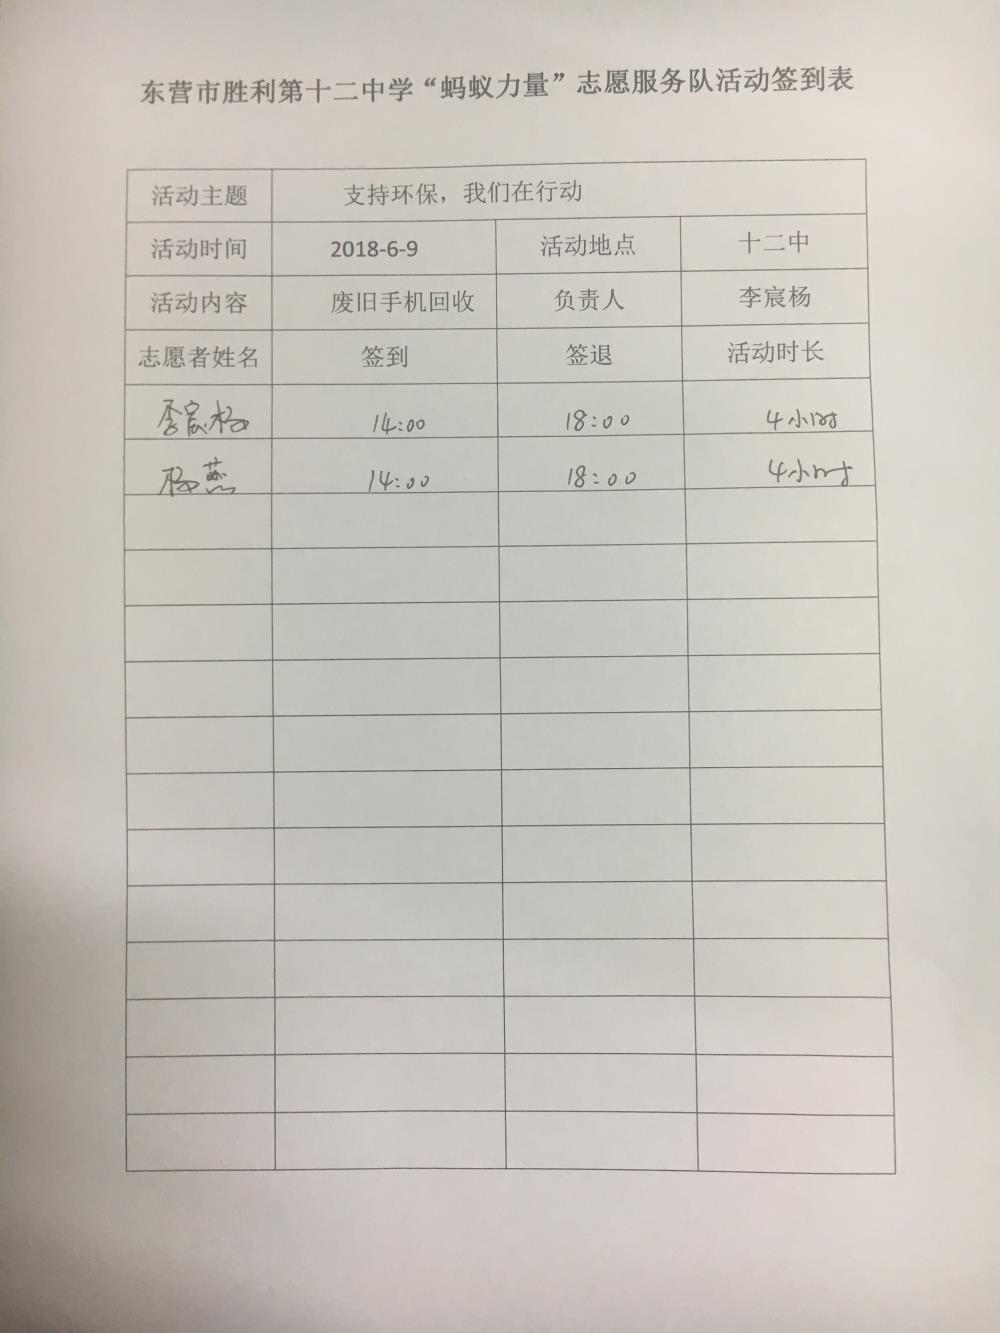 东营市胜利第十二中学“蚂蚁力量”志愿服务队活动签到表
活动主题 支持环保，我们在行动
活动时间 2018-6-9 活动地点 十二中
活动内容 废旧手机回收 负责人 李宸杨
志愿者姓名 签到 签退 活动时长
李宸杨 14:00 18:00 4小时
杨燕 14:00 18:00 4小时